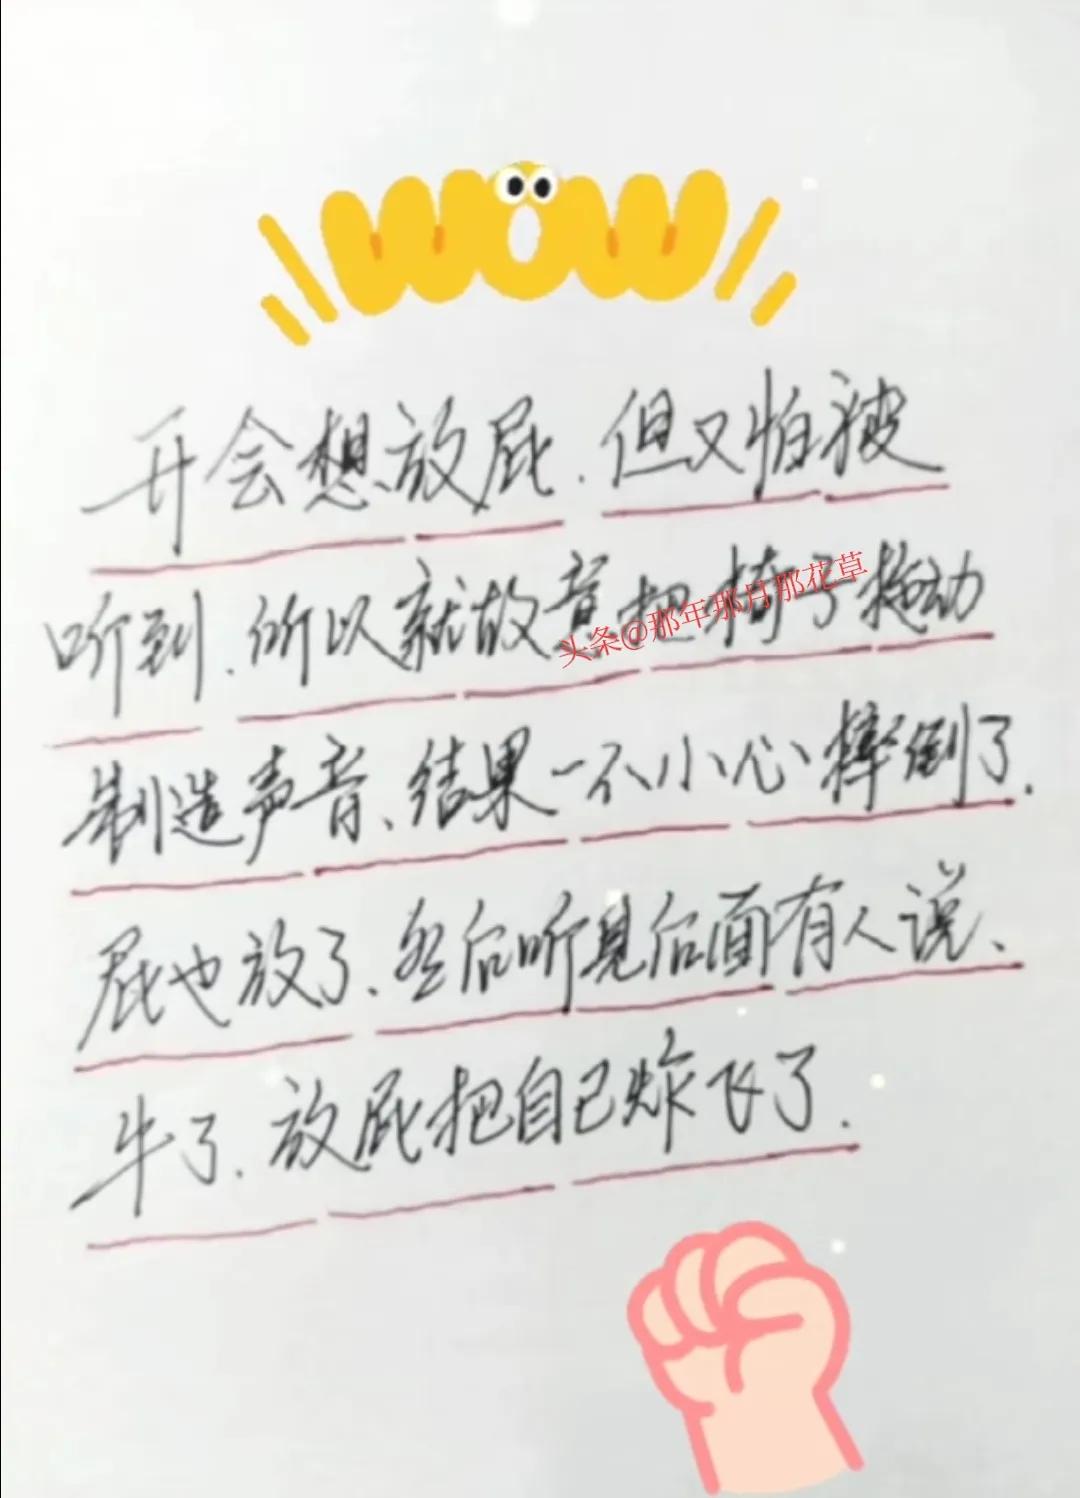 WOW
开会想放屁.但又怕被
听到.所以就故意把椅子拖动
头条@那年那月那花草
制造声音、结果一不小心摔倒了.
屁也放了、然后听见后面有人说、
牛了.放屁把自己炸飞了.